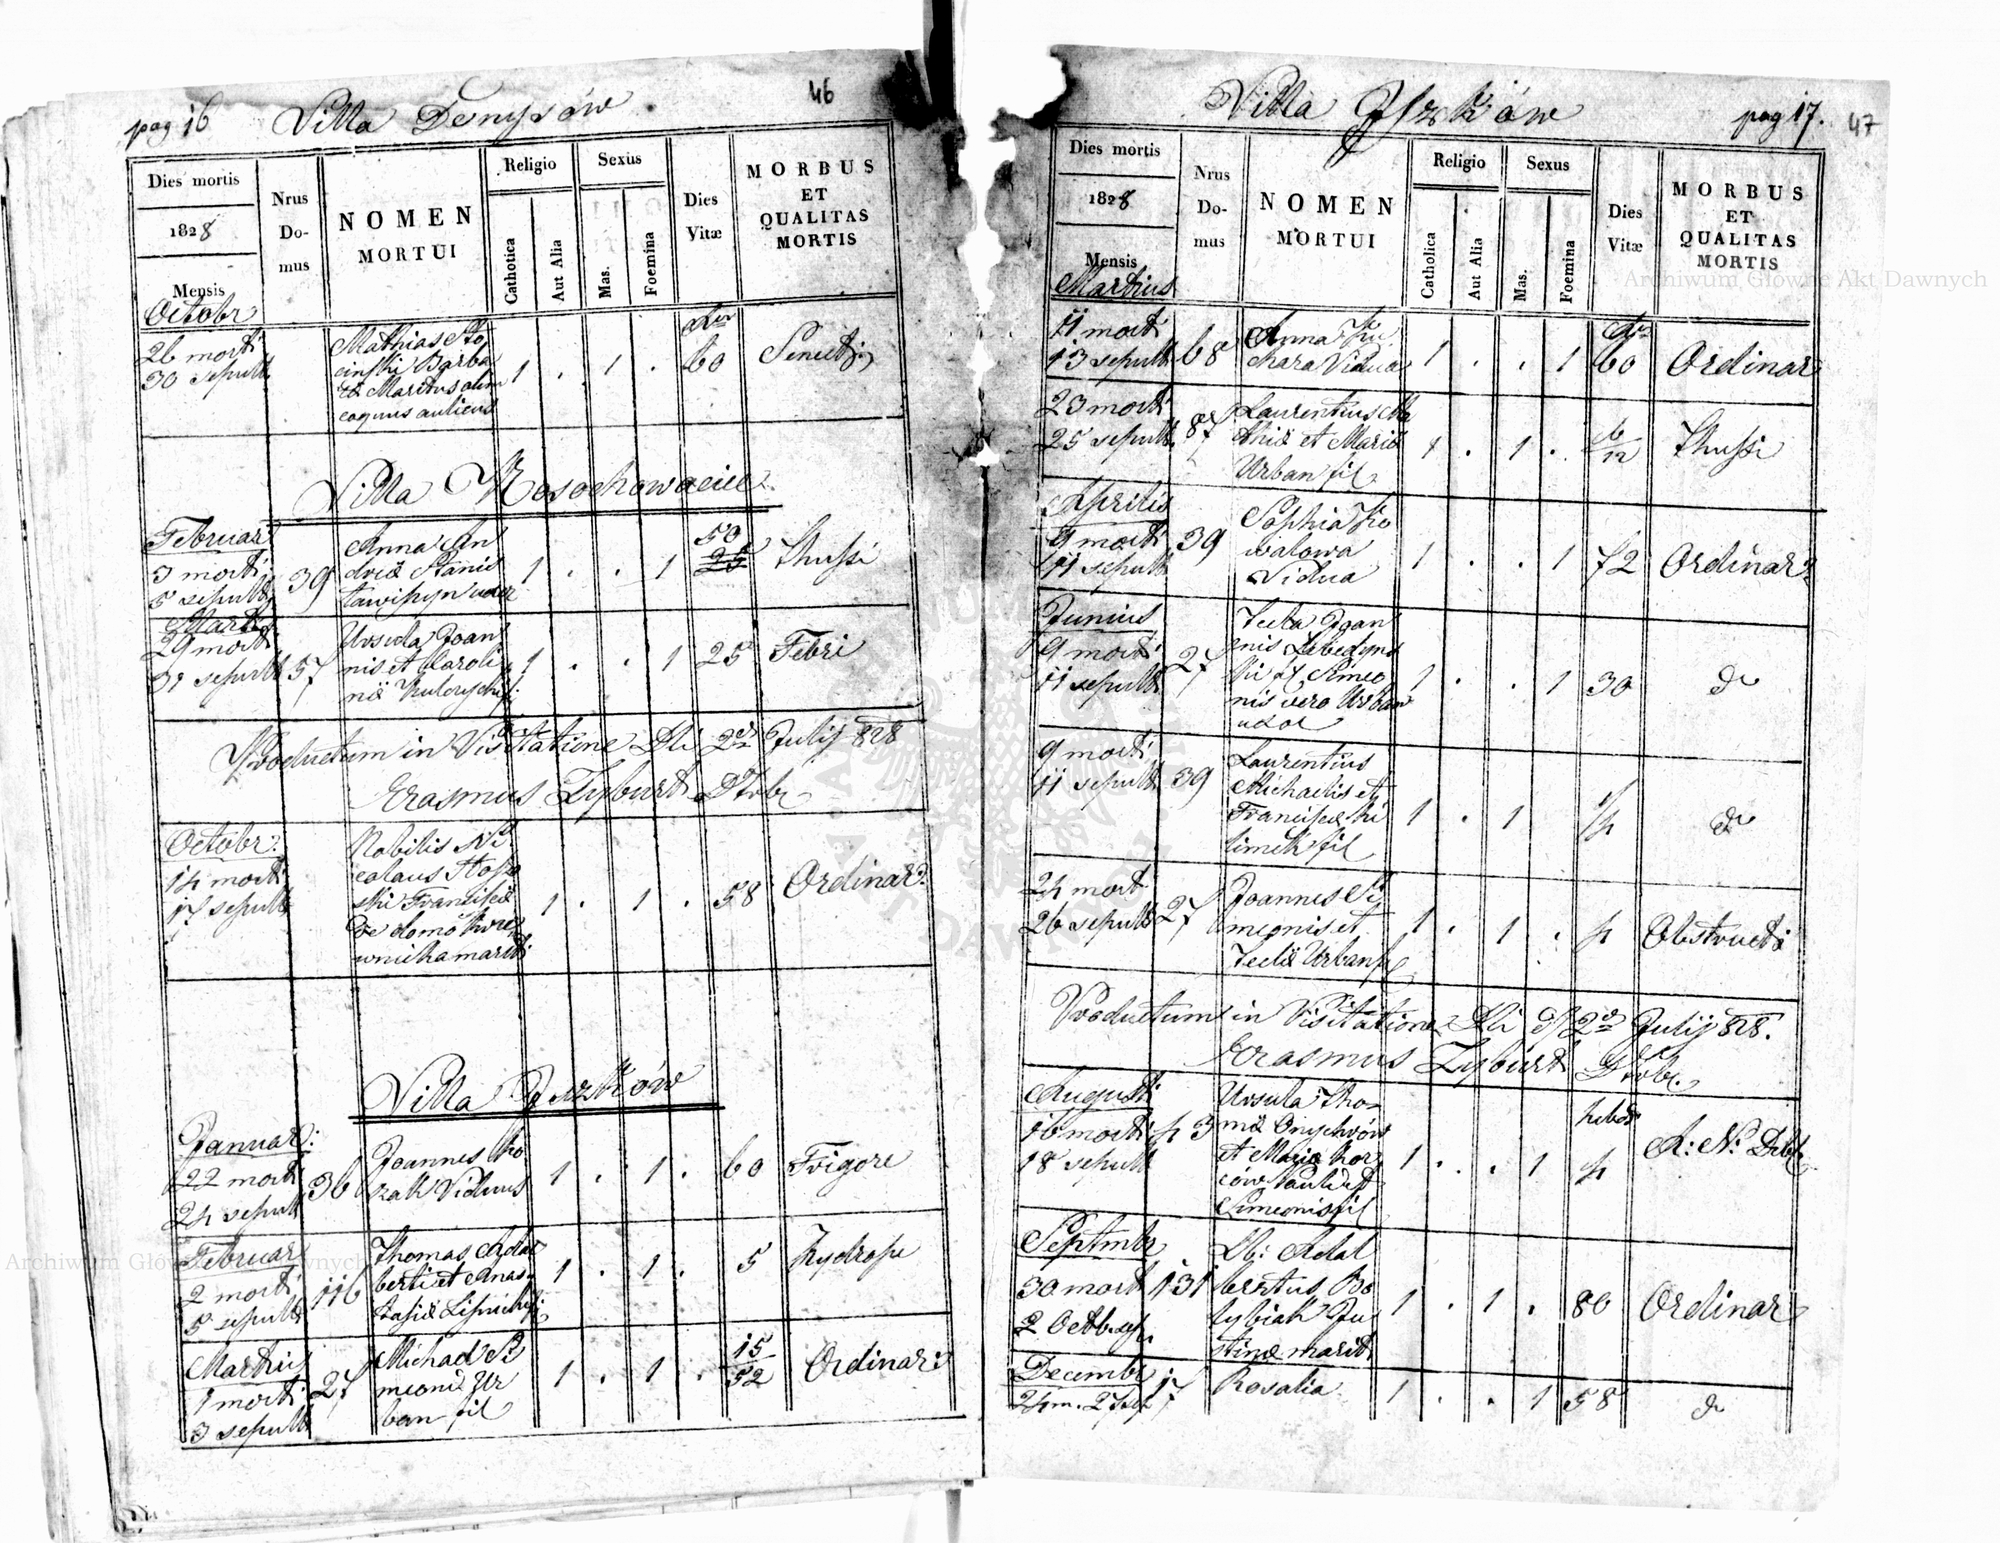 pag 16 Villa Denysów 46
Dies mortis
1828
Mensis
Nrus
Do-
mus
NOMEN
MORTUI
Religio
Cathotica
Aut Alia
Sexus
Mas.
Foemina
Dies
Vitæ
MORBUS
ET
QUALITAS
MORTIS
Octobr
26 morti
30 sepult
Mathias
Barba
Maritus olim
coquus aulicus
1 . 1 . 60
Villa Nosochowaciec
Februar
3 morti
5 sepult
39
Anna An
dreæ Stanis
1 . . 1
50
25
Thussi
Martij
29 morti
31 sepult
57
Ursula Joan
nis et Karoli
næ
1 . . 1 25 Febri
Productum in Visitatione Dli 2da Julij 828
Erasmus Zyburt
Octobr:
14 morti
17 sepult
Nobilis Ni
colaus
ski Franciscæ
de domo
mariti
1 . 1 . 58 Ordinar:
Villa Iszków
Januar:
22 morti
24 sepult
36
Joannes Ko
zak Viduus
1 . 1 . 60 Frigore
Februar
2 morti
5 sepult
116
Thomas Adal
berti et Anas
tasiæ
1 . 1 . 5 Hydrope
Martij
1 morti
3 sepult
27
Michael Si
meonis Ur
ban fil
1 . 1 .
15
52
Ordinar:
Villa Iszków pag 17. 47
Dies mortis
1828
Mensis
Martius
Nrus
Do-
mus
NOMEN
MORTUI
Religio
Catholica
Aut Alia
Sexus
Mas.
Foemina
Dies
Vitæ
MORBUS
ET
QUALITAS
MORTIS
11 morti
13 sepult
68
Anna Ku
chara Vidua
1 . . 1 60 Ordinar
23 morti
25 sepult
87
Laurentius Ma
thiæ et Mariæ
Urban fil
1 . 1 .
6
12
Thussi
Aprilis
9 morti
11 sepult
39
Sophia Ko
walowa
Vidua
1 . . 1 72 Ordinar:
Junius
9 morti
11 sepult
27
Tecla Joan
nis Lebedyns
ki Simeo
nis vero Urban
uxor
1 . . 1 30 do
9 morti
11 sepult
39
Laurentius
Michaelis et
Franciscæ Kli
limek fil
1 . 1 ¼ do
24 mort
26 sepult
27
Joannes Si
meonis et
Teclæ Urban fil
1 . 1 . 4 Obstructi
Productum in Visitatione Dli 2da Julij 828.
Erasmus Zyburt
Augusti
16 morti
18 sepult
43
Ursula Tho
mæ Onyskow
et Mariæ Kor
Simeonis fil
1 . . 1
hebd
4
Septmbr
30 morti
2 Octb. sep.
131
Adal
bertus Bo
tybiak Ju
stinæ marit
1 . 1 . 80 Ordinar
Decembr
24 m. 27 sep
17
Rosalia
1 . . 1 58 do
Archiwum Główne Akt Dawnych
Archiwum Główne Akt Dawnych